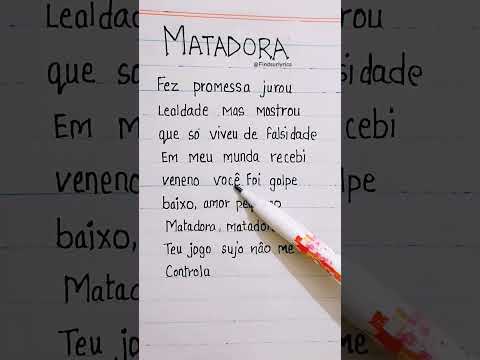 MATADORA
@Findsurlyrics
Fez promessa jurou
Lealdade mas mostrou
que só viveu de falsidade
Em meu munda recebi
veneno você foi golpe
baixo, amor
Matadora,
Teu jogo sujo não me
Controla